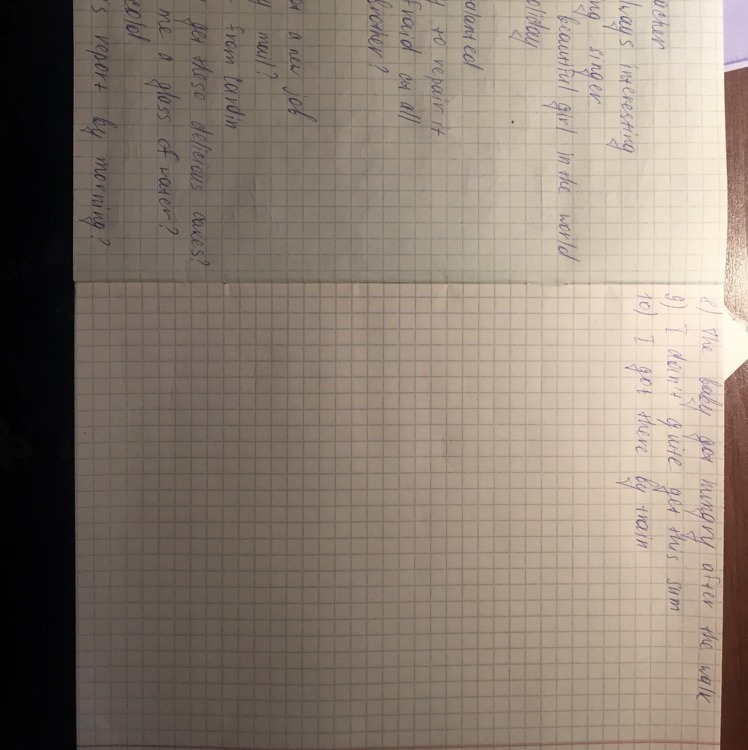 ways interesting
ng singer
beautiful girl in the world
oliday
y to repair it
a new job
y mail?
from
get these delicious cakes?
me a glass of water?
cold
's report by morning?
8) The baby got hungry after the walk
9) I don't quite get this sum
10) I got there by train